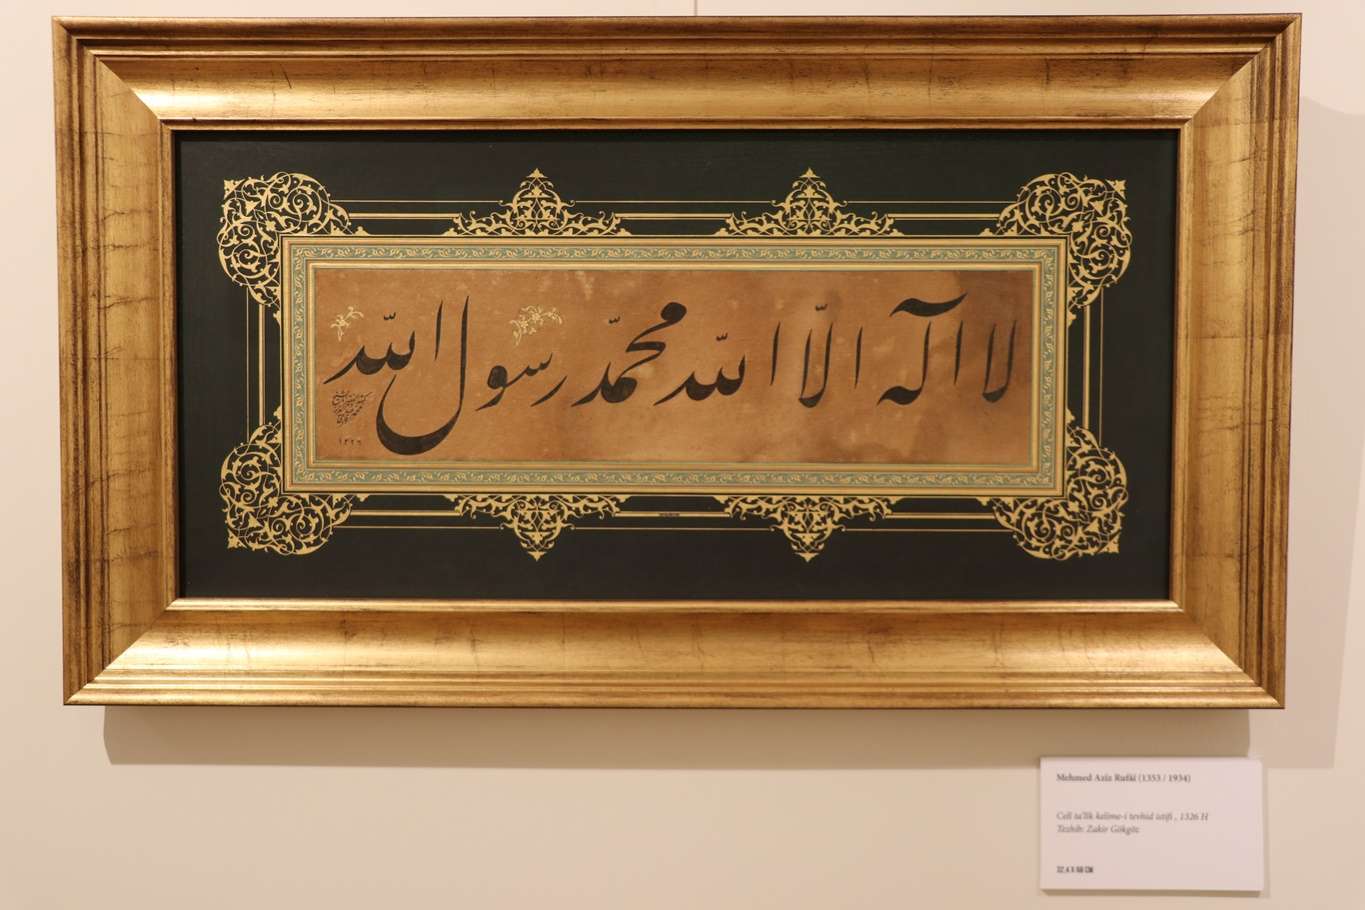 لا اله الا الله محمد رسول الله
١٣٢٦
Mehmed Aziz Rufki (1353 / 1934)
Celî ta'lik kelime-i tevhid istifi , 1326 H
Tezhib: Zakir Gökgöz
32,4 X 68 CM